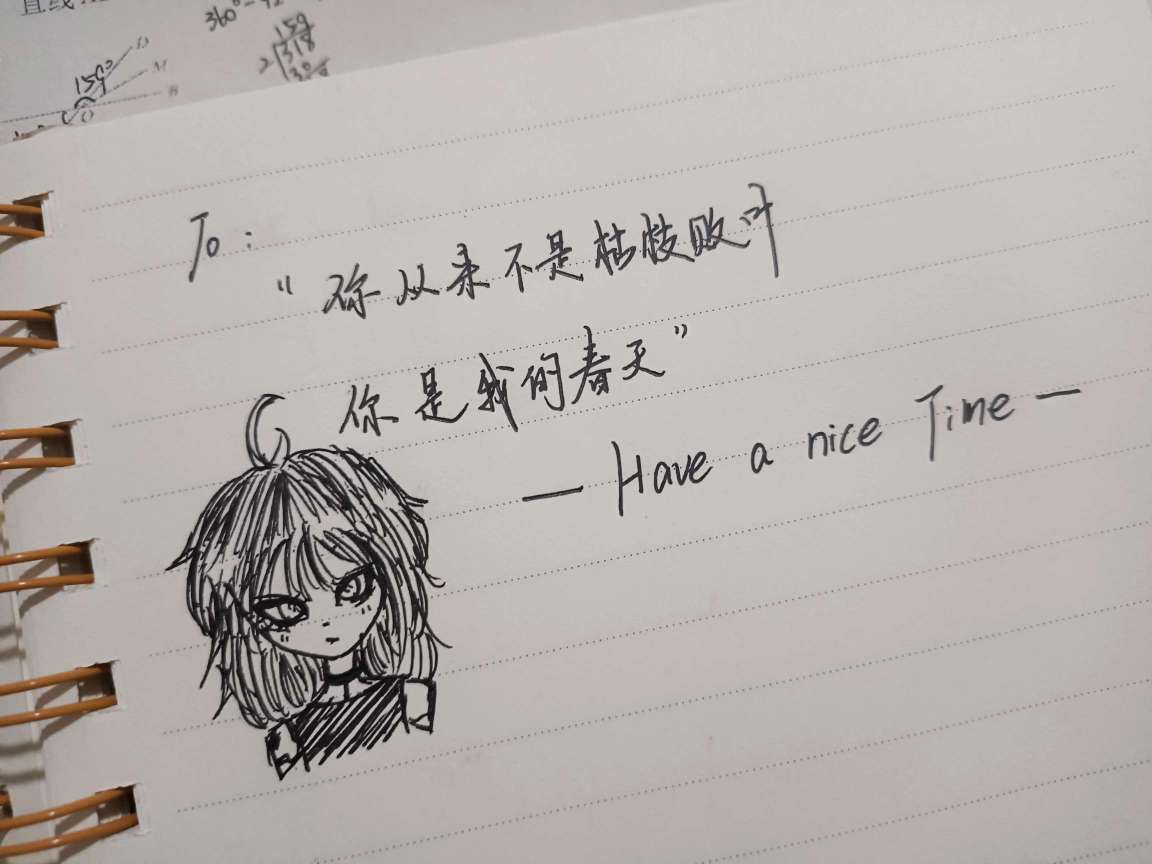 直线
360°-42
159
2 318
159°
D
M
B
O
To:
"你从来不是枯枝败叶
你是我的春天"
— Have a nice Time —